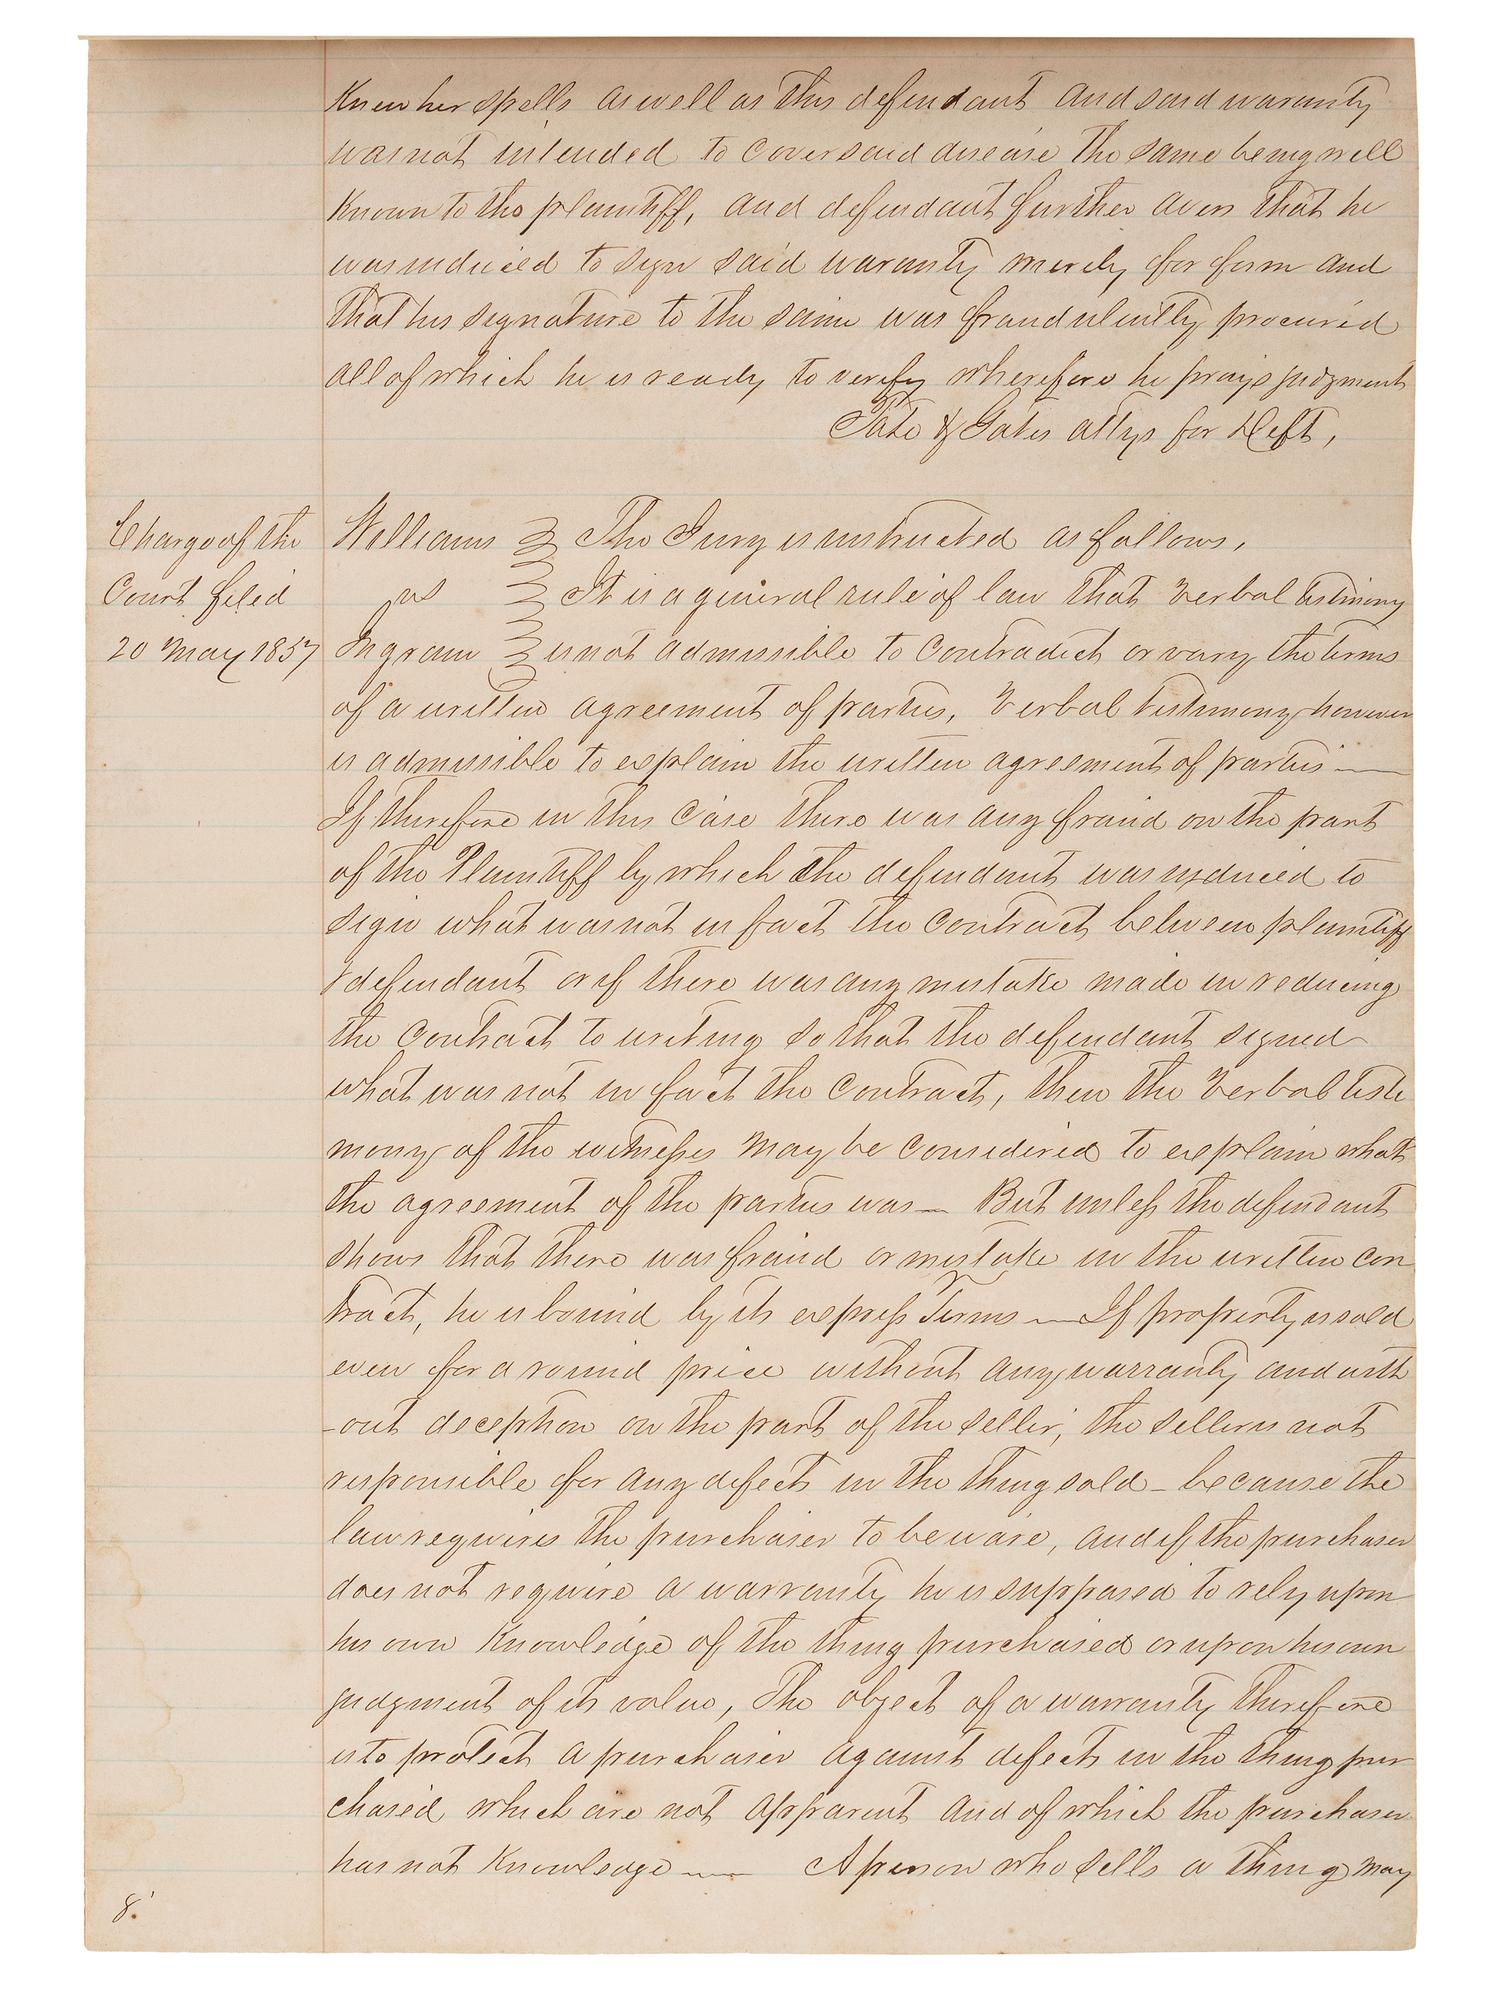 Knew her spells as well as this defendant and said waranty
was not intended to cover said disease the same being well
Known to the plaintiff, and defendant further avers that he
was induced to sign said waranty merely for form and
that his signature to the same was fraudulently procured
all of which he is ready to verify wherefore he prays judgment
Pate & Gates attys for Deft,
Charge of the
Court filed
20 May 1857
Williams The Jury is instructed as follows,
vs It is a general rule of law that verbal testimony
Ingram is not admissible to contradict or vary the terms
of a written agreement of parties, verbal testimony however
is admissible to explain the written agreement of parties —
If therefore in this case there was any fraud on the part
of the Plaintiff by which the defendant was induced to
sign what was not in fact the contract between plaintiff
& defendant or if there was any mistake made in reducing
the contract to writing so that the defendant signed
what was not in fact the contract, then the verbal testi
mony of the witnesses may be considered to explain what
the agreement of the parties was — But unless the defendant
shows that there was fraud or mistake in the written con
tract, he is bound by its express Terms — If property is sold
even for a round price without any warranty and with
-out deception on the part of the seller, the seller is not
responsible for any defects in the thing sold — because the
law requires the purchaser to beware, and if the purchaser
does not require a warranty he is supposed to rely upon
his own Knowledge of the thing purchased or upon his own
judgment of its value, The object of a warranty therefore
is to protect a purchaser against defects in the thing pur
chased which are not apparent and of which the purchaser
has not Knowledge — A person who sells a thing may
8.